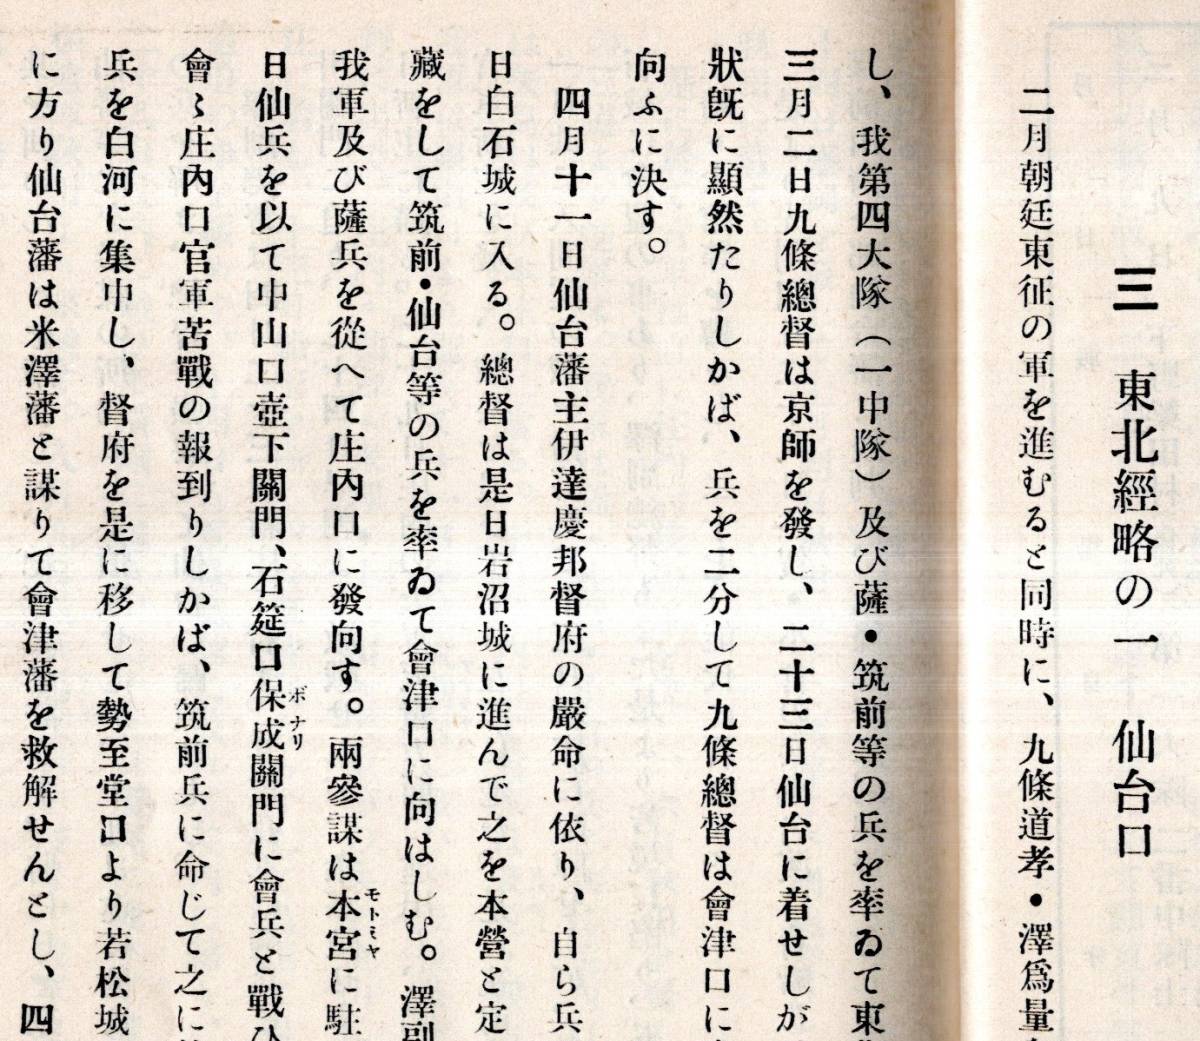 三 東北經略の一 仙台口
二月朝廷東征の軍を進むると同時に、九條道孝・澤爲量
し、我第四大隊(一中隊)及び薩・筑前等の兵を率ゐて東
三月二日九條總督は京師を發し、二十三日仙台に着せしが
狀旣に顯然たりしかば、兵を二分して九條總督は會津口に
向ふに決す。
四月十一日仙台藩主伊達慶邦督府の嚴命に依り、自ら兵
日白石城に入る。總督は是日岩沼城に進んで之を本營と定
藏をして筑前・仙台等の兵を率ゐて會津口に向はしむ。澤副
我軍及び薩兵を從へて庄內口に發向す。兩參謀は本宮モトミヤに駐
日仙兵を以て中山口壺下關門、石筵口保成ボナリ關門に會兵と戰ひ
會〻庄內口官軍苦戰の報到りしかば、筑前兵に命じて之に
兵を白河に集中し、督府を是に移して勢至堂口より若松城
に方り仙台藩は米澤藩と謀りて會津藩を救解せんとし、四